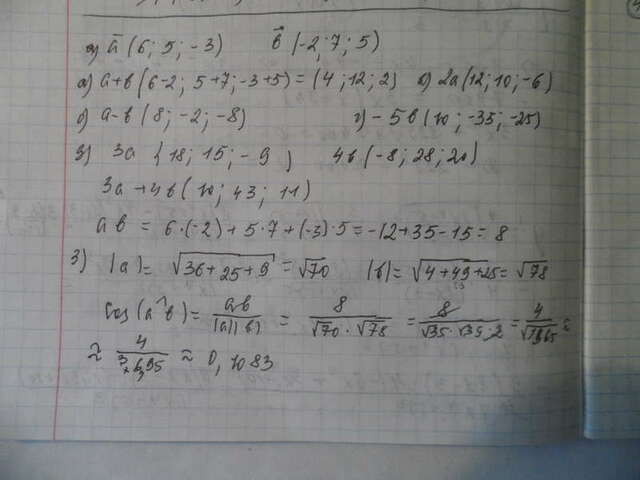 a) ā (6; 5; -3)   b̄ (-2; 7; 5)
a) a+b (6-2; 5+7; -3+5) = (4; 12; 2)   2a (12; 10; -6)
a-b (8; -2; -8)   г) -5b (10; -35; -25)
3a (18; 15; -9)   4b (-8; 28; 20)
3a+4b (10; 43; 11)
ab = 6·(-2) + 5·7 + (-3)·5 = -12+35-15 = 8
3) |a| = √36+25+9 = √70   |b| = √4+49+25 = √78
cos(a^b) = ab/|a||b| = 8/√70·√78 = 8/√35·√39·2 = 4/√1365 ≈
≈ 4/36,95 ≈ 0,1083